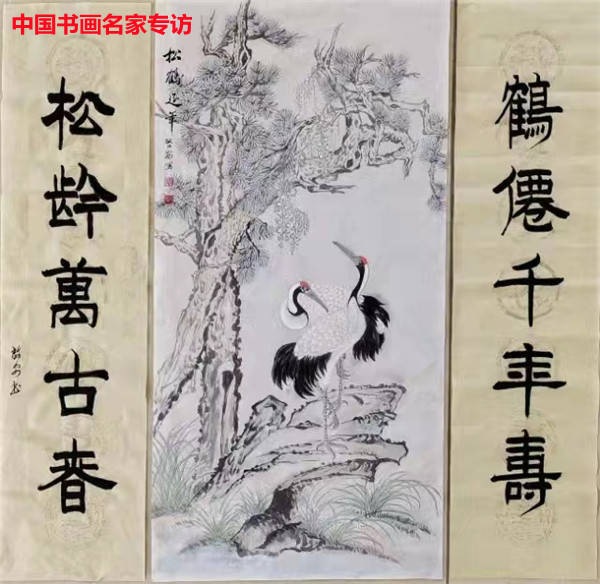 中国书画名家专访
鶴僊千年壽
松龄萬古春
松鶴延年